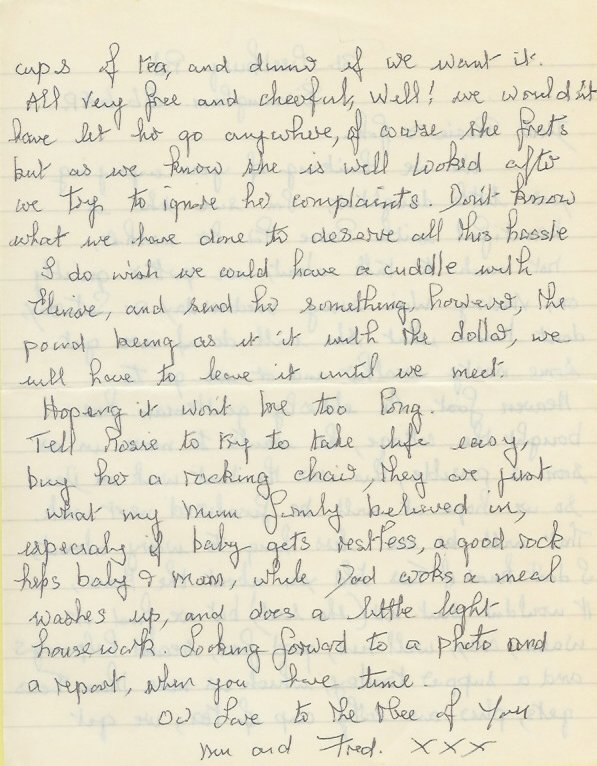 cups of tea, and dinner if we want it.
All very free and cheerful, Well! we wouldn't
have let her go anywhere, of course she frets
but as we know she is well looked after
we try to ignore her complaints. Don't know
what we have done to deserve all this hassle
I do wish we could have a cuddle with
and send her something, however, the
pound being as it it with the dollar, we
will have to leave it until we meet.
Hoping it wont be too long.
Tell Rosie to try to take life easy,
buy her a rocking chair, they are just
what my Mum firmly believed in,
especialy if baby gets restless, a good rock
helps baby & Mom, while Dad cooks a meal
washes up, and does a little light
housework. Looking forward to a photo and
a report, when you have time.
Our Love to the three of You
and Fred. XXX